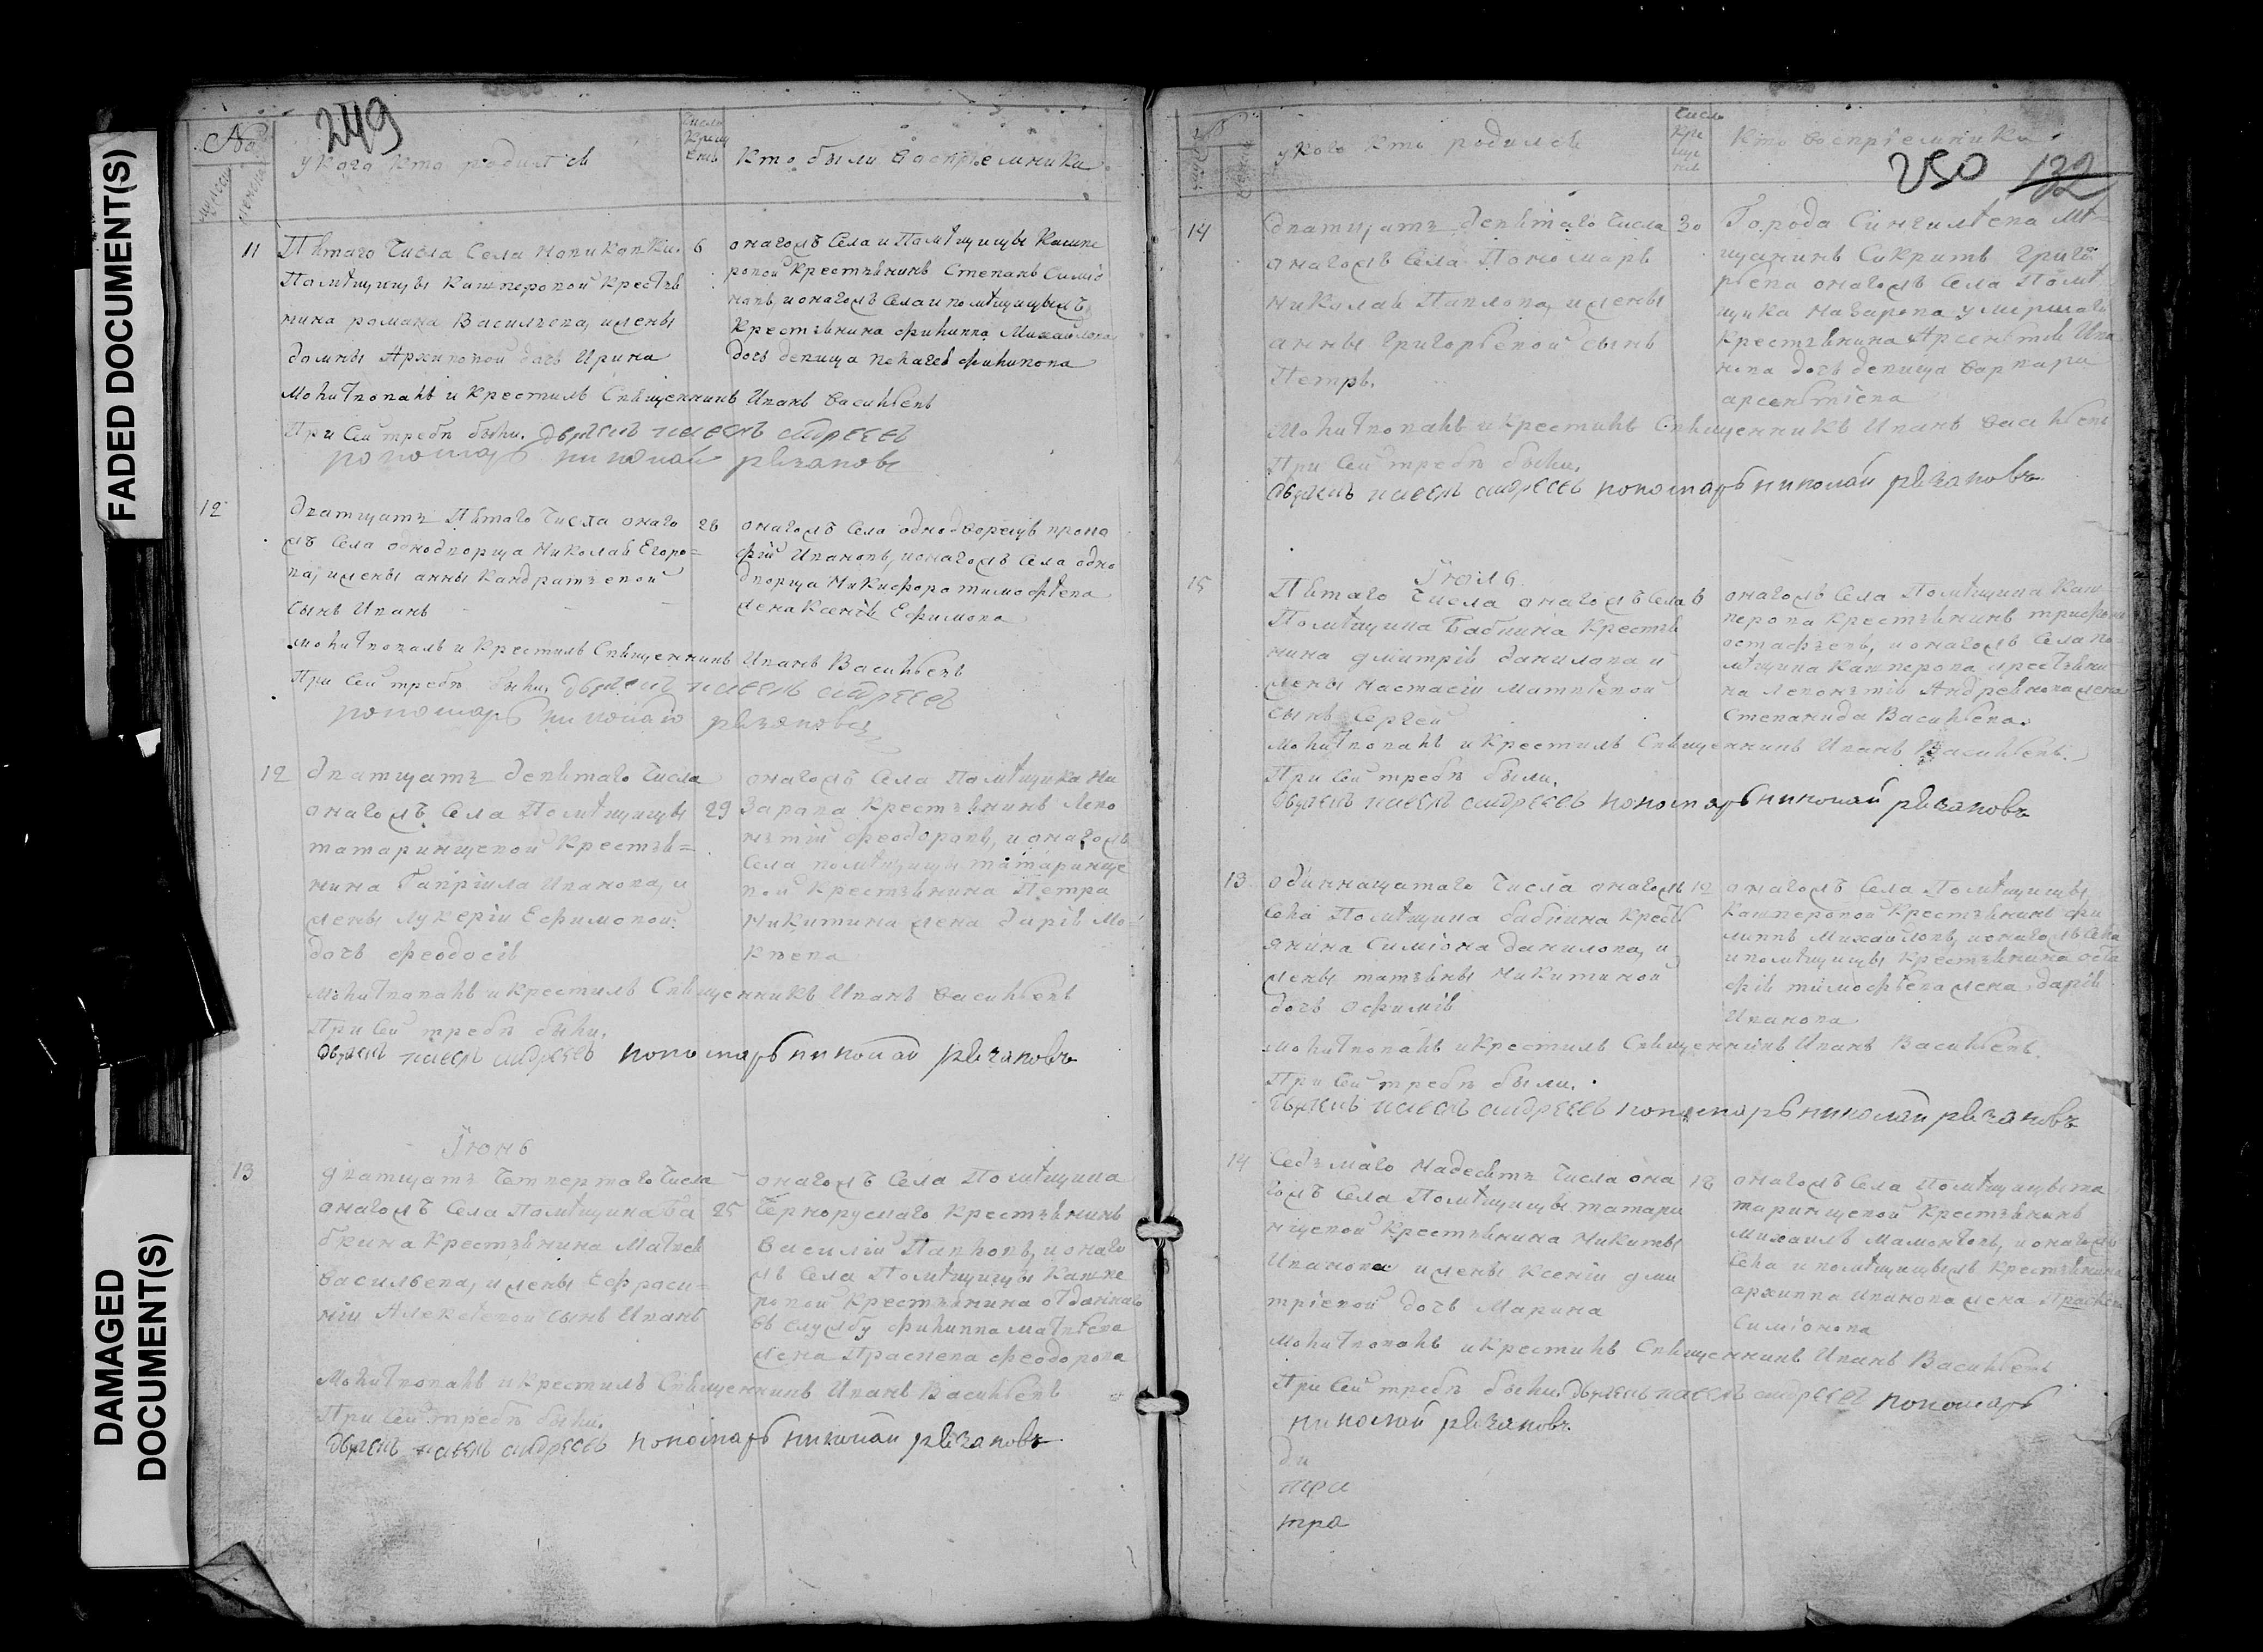 FADED DOCUMENT(S)
DAMAGED
DOCUMENT(S)
249
№
у кого кто родился
Числа
Крещ
ения
Кто были восприемники
11
Пятаго Числа Села Новиковки.
Помѣщицы Кашперовой Крестья
нина романа Васильева, и жены
домны Архиповой дочь Ирина
6
онагожъ Села и Помѣщицы Кашпе
ровой Крестьянинъ Степанъ Симіо
новъ, и онагожъ Села и помѣщицыжъ
Крестьянина филиппа Михайлова
дочь девица пелагея филипова
Молитвовалъ и Крестилъ Священникъ Иванъ Васильевъ
При Сей требѣ были, дьяконъ павелъ андреевъ
пономарь николай рѣзановъ
12
дватцать Пятаго Числа онаго
жъ Села однодворца Николая Егоро=
ва, и жены анны Кандратьевой
Сынъ Иванъ
26
онагожъ Села однодворецъ проко
фій Ивановъ, и онагожъ Села одно
дворца Никифора тимофѣева
жена Ксенія Ефимова
Молитвовалъ и Крестилъ Священникъ Иванъ Васильевъ
При Сей требѣ были, дьяконъ павелъ андреевъ
пономарь николай рѣзановъ
12
дватцать девятаго Числа
онагожъ Села Помѣщицы
татаринцевой Крестья=
нина Гавріила Иванова, и
жены Лукеріи Ефимовой
дочь феодосія
29
онагожъ Села Помѣщика На
зарова Крестьянинъ Лево
нтій феодоровъ, и онагожъ
Села помѣщицы татаринце
вой Крестьянина Петра
Никитина жена дарія Мо
кѣева
Молитвовалъ и Крестилъ Священникъ Иванъ Васильевъ
При Сей требѣ были,
дьяконъ павелъ андреевъ пономарь николай рѣзановъ
Іюнь
13
дватцать Четвертаго Числа
онагожъ Села Помѣщика Ба
бкина Крестьянина Матвея
Васильева, и жены Ефраси=
ніи Алексѣевой Сынъ Иванъ
25
онагожъ Села Помѣщика
Чернорускаго Крестьянинъ
Василій Павловъ, и онаго
жъ Села Помѣщицы Кашпе
ровой Крестьянина отданнаго
въ службу филиппа матвѣева
жена Прасковья феодорова
Молитвовалъ и Крестилъ Священникъ Иванъ Васильевъ
При Сей требѣ были.
дьяконъ павелъ андреевъ пономарь николай рѣзановъ
у кого кто родился
Числ
Кре
ще
ния
Кто восприемники
250 132
14
дватцать девятаго Числа
онагожъ Села Пономаря
Николая Павлова, и жены
анны Григорьевой Сынъ
Петръ.
30
Города Сингилѣева Мѣ=
щанинъ Григо
рьева онагожъ Села Помѣ
щика Назарова умершаго
Крестьянина Арсентія Ива
нова дочь девица варвара
арсентіева
Молитвовалъ и Крестилъ Священникъ Иванъ Васильевъ
При Сей требѣ были,
дьяконъ павелъ андреевъ пономарь николай рѣзановъ
Іюль
15
Пятаго Числа онагожъ Села
Помѣщика Бабкина Крестья
нина дмитрія данилова и
жены Настасіи Матвѣевой
Сынъ Сергей
6
онагожъ Села Помѣщика Каш
перова Крестьянинъ трифонъ
остафьевъ, и онагожъ Села по
мѣщика Кашперова крестьяни
на Левонтія Андреянова жена
Степанида Васильева.
Молитвовалъ и Крестилъ Священникъ Иванъ Васильевъ.
При Сей требѣ были,
дьяконъ павелъ андреевъ пономарь николай рѣзановъ
13
одиннацатаго Числа онагожъ
Села Помѣщика бабкина Кресть
янина Симіона данилова, и
жены татьяны Никитиной
дочь офимія
12
онагожъ Села Помѣщицы
Кашперовой Крестьянинъ фи
липпъ Михайловъ, и онагожъ Села
и помѣщицы Крестьянина оста
фія тимофѣева жена дарія
Иванова
Молитвовалъ и Крестилъ Священникъ Иванъ Васильевъ.
При Сей требѣ были.
дьяконъ павелъ андреевъ пономарь николай рѣзановъ
14
Седьмаго Надесять Числа она
гожъ Села Помѣщицы татари
нцевой Крестьянина Никиты
Иванова и жены Ксеніи дми
тріевой дочь Марина
18
онагожъ Села Помѣщицы та
таринцевой Крестьянинъ
Михаилъ Мамонтовъ, и онагожъ
Села и помѣщицыжъ Крестьянина
архиппа Иванова жена
Симіонова
Молитвовалъ и Крестилъ Священникъ Иванъ Васильевъ
При Сей требѣ были. дьяконъ павелъ андреевъ пономарь
николай рѣзановъ
ди
при
тра